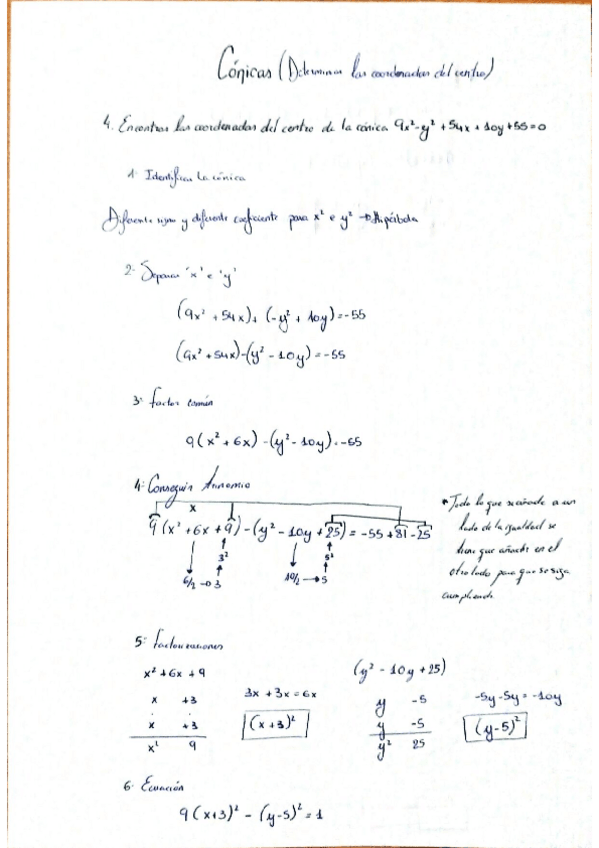 Cónicas (Determinar las coordenadas del centro)
4. Encontrar las coordenadas del centro de la cónica 9x² - y² + 54x + 10y + 55 = 0
1· Identificar la cónica
Diferente signo y diferente coeficiente para x² e y² → Hipérbola
2· Separar 'x' e 'y'
(9x² + 54x) + (-y² + 10y) = -55
(9x² + 54x) - (y² - 10y) = -55
3· factor común
9(x² + 6x) - (y² - 10y) = -55
4· Conseguir trinomio
x
9(x² + 6x + 9) - (y² - 10y + 25) = -55 + 81 - 25
3² 5²
6/2 → 3 10/2 → 5
* Todo lo que se añade a un
lado de la igualdad se
tiene que añadir en el
otro lado para que se siga
cumpliendo
5· factorizaciones
x² + 6x + 9
x +3
x +3
x² 9
3x + 3x = 6x
(x+3)²
(y² - 10y + 25)
y -5
y -5
y² 25
-5y -5y = -10y
(y-5)²
6· Ecuación
9(x+3)² - (y-5)² = 1